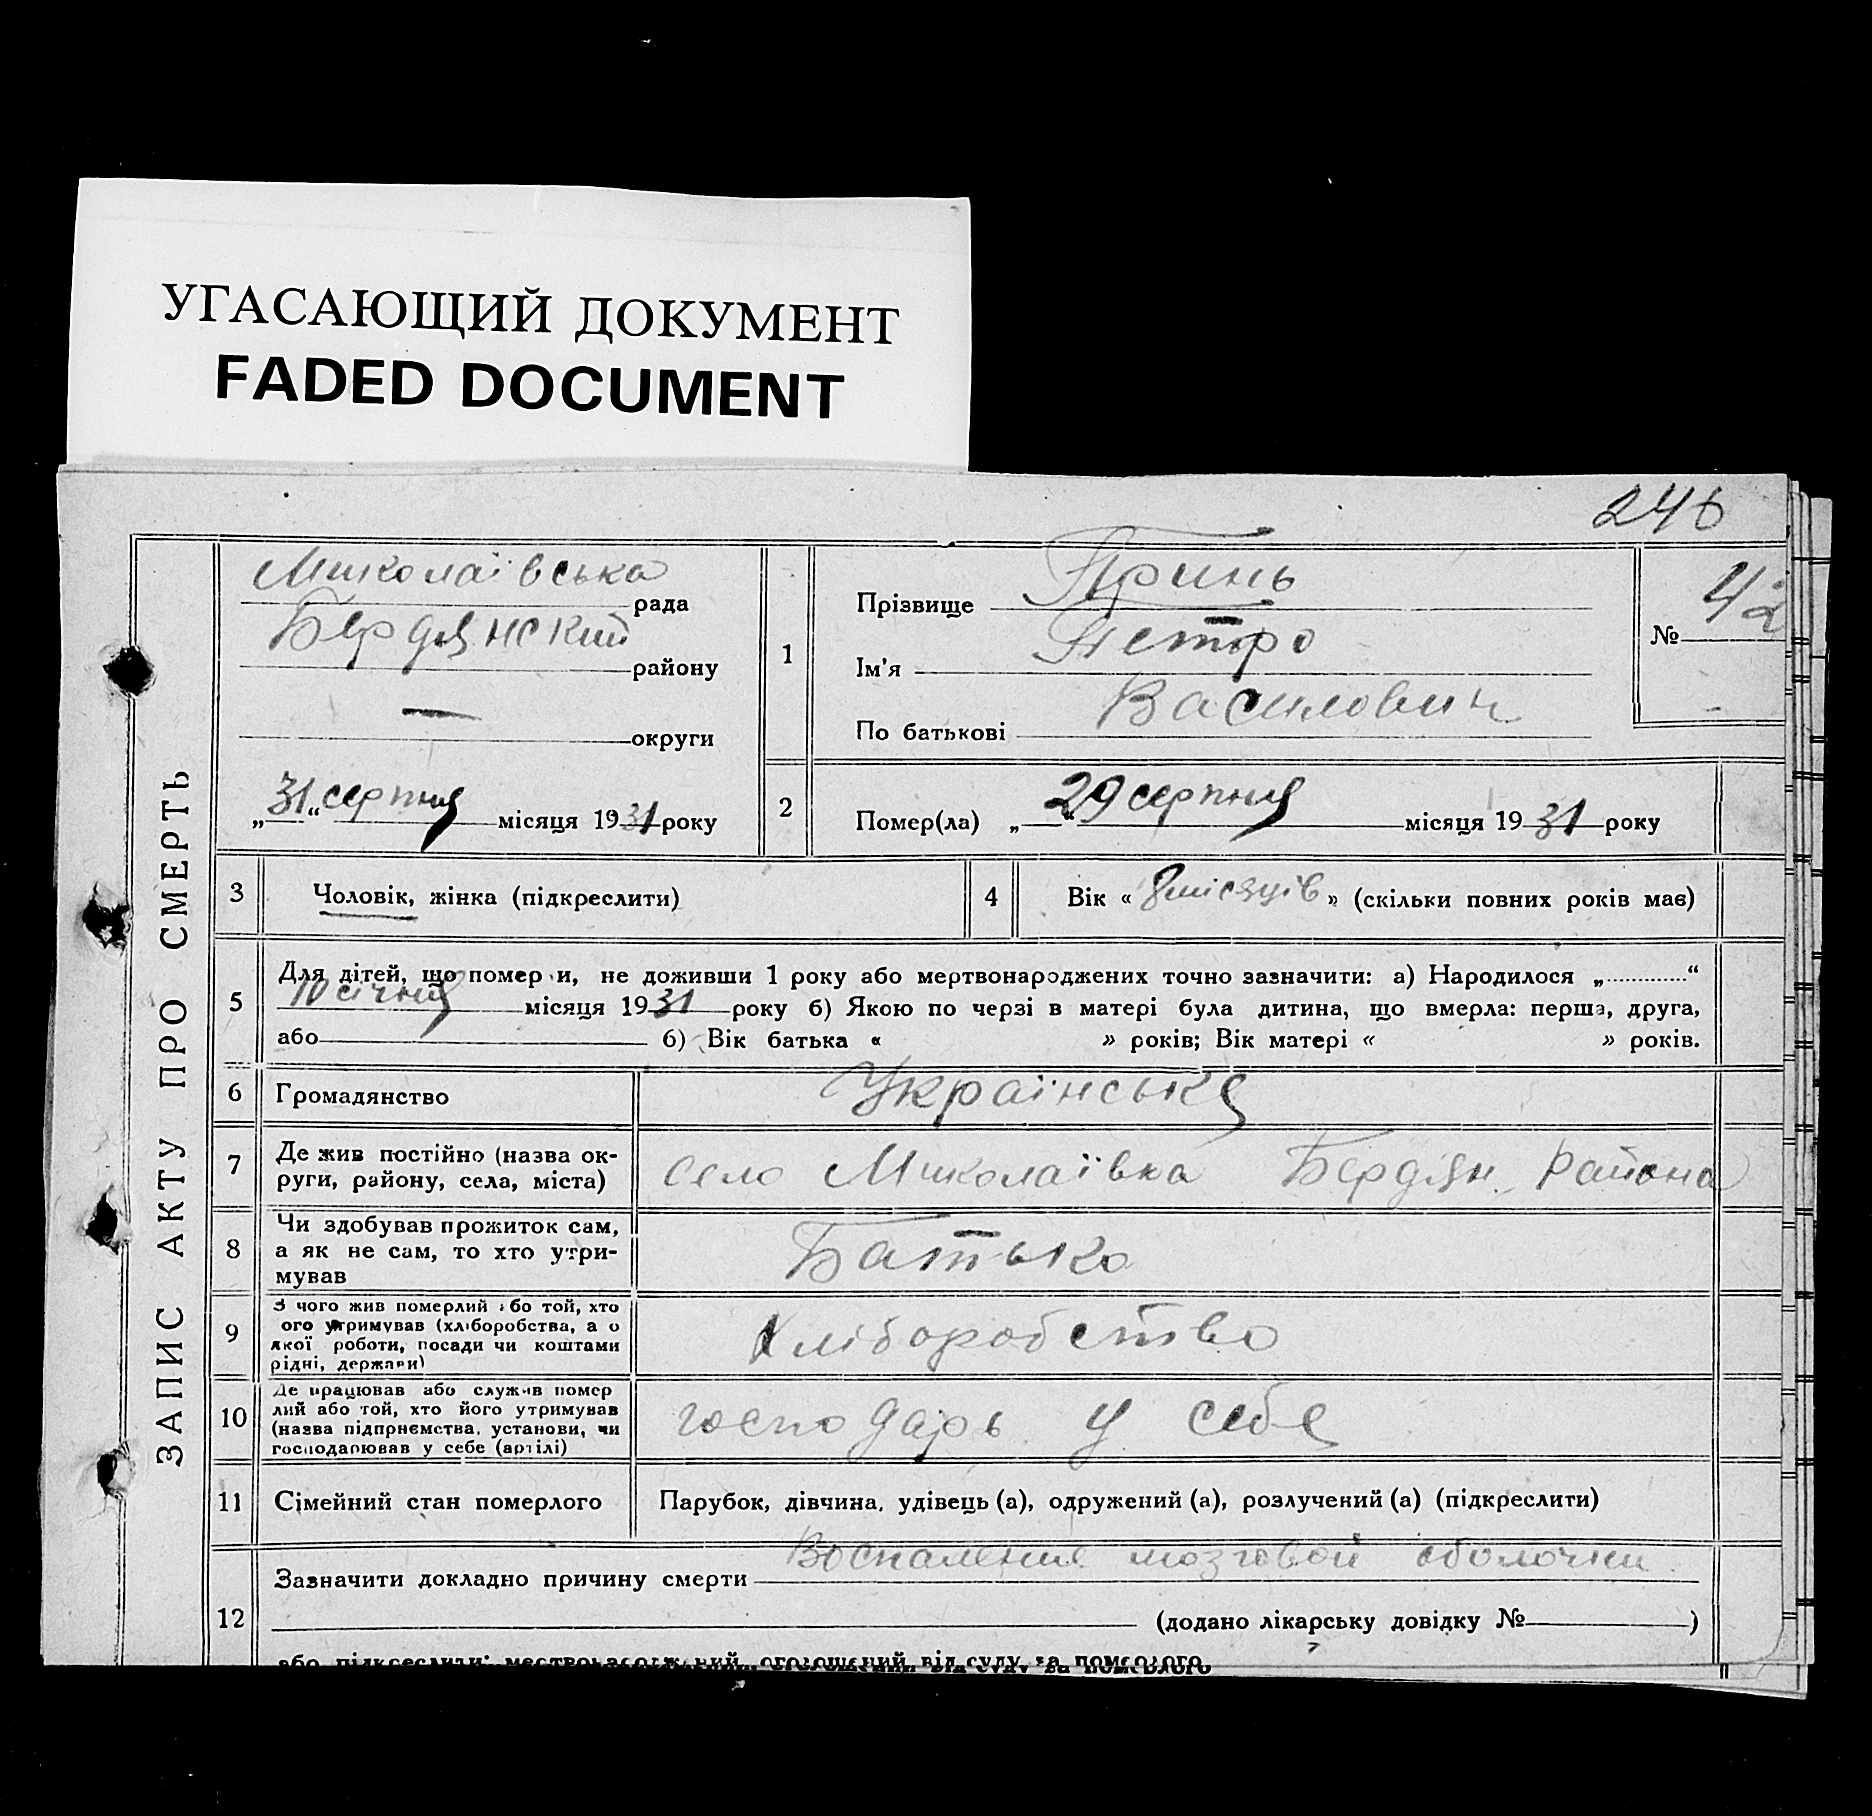 УГАСАЮЩИЙ ДОКУМЕНТ
FADED DOCUMENT
246
ЗАПИС АКТУ ПРО СМЕРТЬ
Миколаївська рада
Бердянский району
— округи
„31“ серпня місяця 1931 року
1
Прізвище Принь
Ім'я Петро
По батькові Василович
№ 42
2
Помер(ла) „29“ серпня місяця 1931 року
3
Чоловік, жінка (підкреслити)
4
Вік « 8 місяців » (скільки повних років має)
5
Для дітей, що помер и, не доживши 1 року або мертвонароджених точно зазначити: а) Народилося „ “
10 січня місяця 1931 року б) Якою по черзі в матері була дитина, що вмерла: перша, друга,
або б) Вік батька « » років; Вік матері « » років.
6
Громадянство
Українське
7
Де жив постійно (назва ок-
руги, району, села, міста)
село Миколаївка Бердян. Района
8
Чи здобував прожиток сам,
а як не сам, то хто утри-
мував
Батько
9
З чого жив померлий бо той, хто
ого утримував (хліборобства, а о
якої роботи, посади чи коштами
рідні, держави)
Хліборобство
10
Де працював або служив помер
лий або той, хто його утримував
(назва підприємства, установи, чи
господарював у себе (артілі)
господарь у себе
11
Сімейний стан померлого
Парубок, дівчина, удівець (а), одружений (а), розлучений (а) (підкреслити)
12
Зазначити докладно причину смерти Воспаление мозговой оболочки
(додано лікарську довідку № )
або підкреслити: мертвонароджений, оголошений від суду за померлого